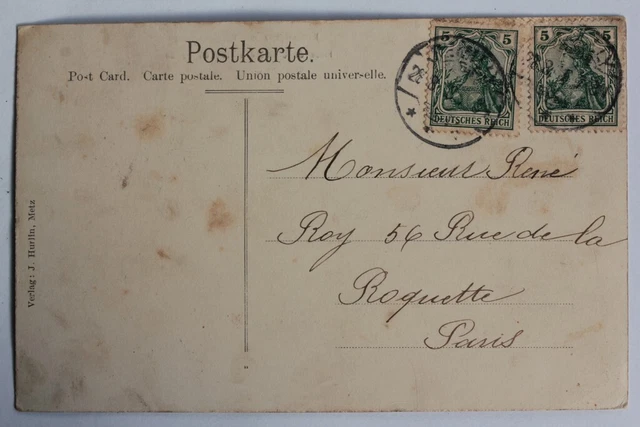 Postkarte.
Post Card. Carte postale. Union postale universelle.
5 5
DEUTSCHES REICH
5 5
DEUTSCHES REICH
Monsieur René
Roy 56 Rue de la
Roquette
Paris
Verlag: J. Hurlin, Metz